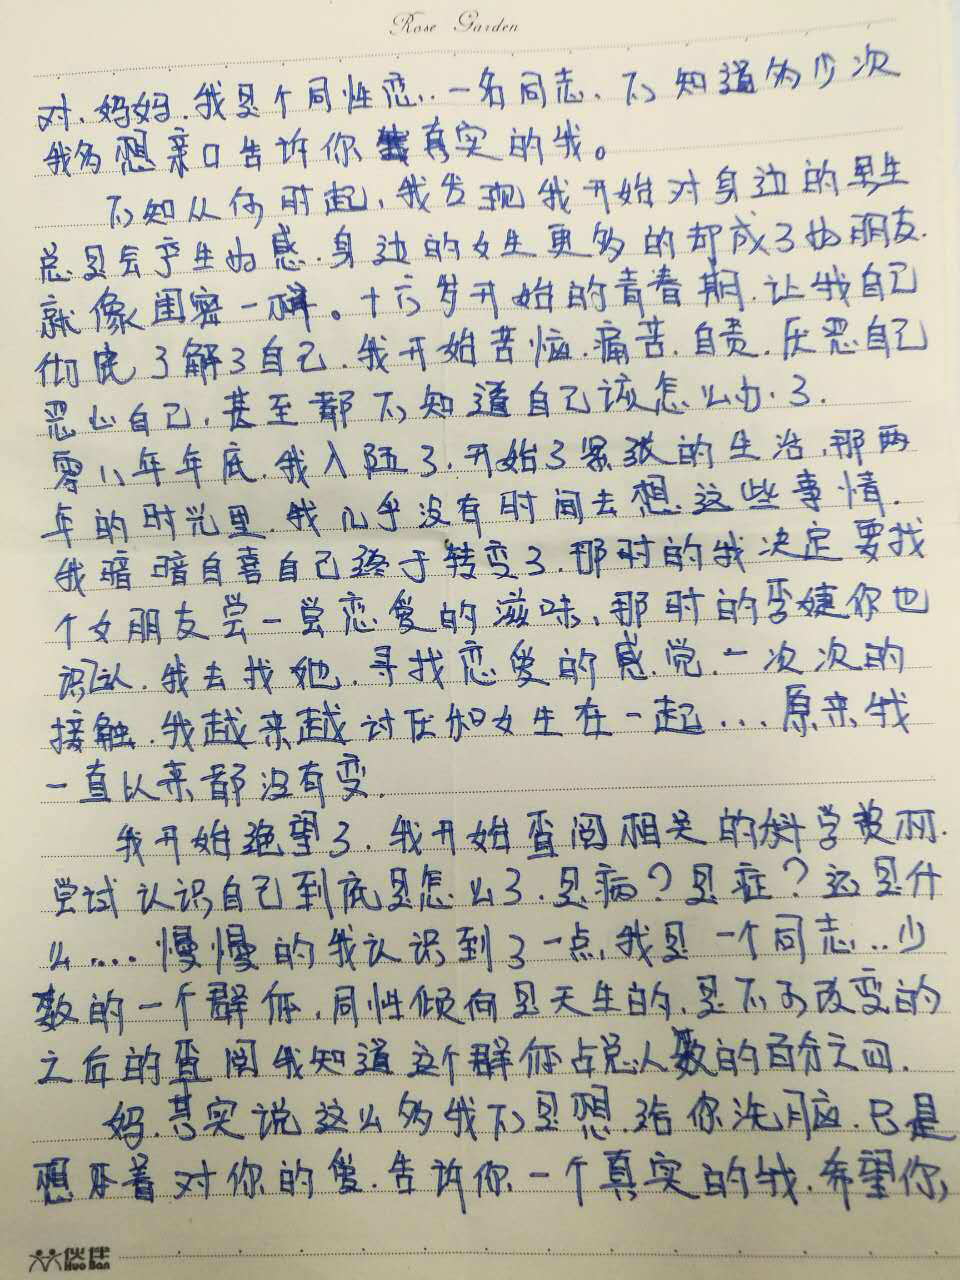 Rose Garden
对、妈妈.我是个同性恋..一名同志、不知道多少次
我多想亲口告诉你真实的我。
不知从何时起,我发现我开始对身边的男生
总是会产生好感.身边的女生更多的却成了好朋友.
就像闺密一样。十六岁开始的青春期.让我自己
彻底了解了自己.我开始苦恼.痛苦.自责.厌恶自己
恶心自己.甚至都不知道自己该怎么办.了.
零八年年底.我入伍了.开始了紧张的生活.那两
年的时光里.我几乎没有时间去想.这些事情.
我暗暗自喜自己终于转变了.那时的我决定要找
个女朋友尝一尝恋爱的滋味、那时的李婕你也
认识.我去找她.寻找恋爱的感觉.一次次的
接触.我越来越讨厌和女生在一起...原来我
一直以来都没有变.
我开始绝望了.我开始查阅相关的科学资料.
尝试认识自己到底是怎么了.是病?是症?还是什
么....慢慢的我认识到了一点,我是一个同志...少
数的一个群体.同性倾向是天生的.是不可改变的
之后的查阅我知道这个群体占总人数的百分之四.
妈.其实说这么多我不是想.给你洗脑.只是
想本着对你的爱.告诉你一个真实的我.希望你,
伙伴
Huo Ban